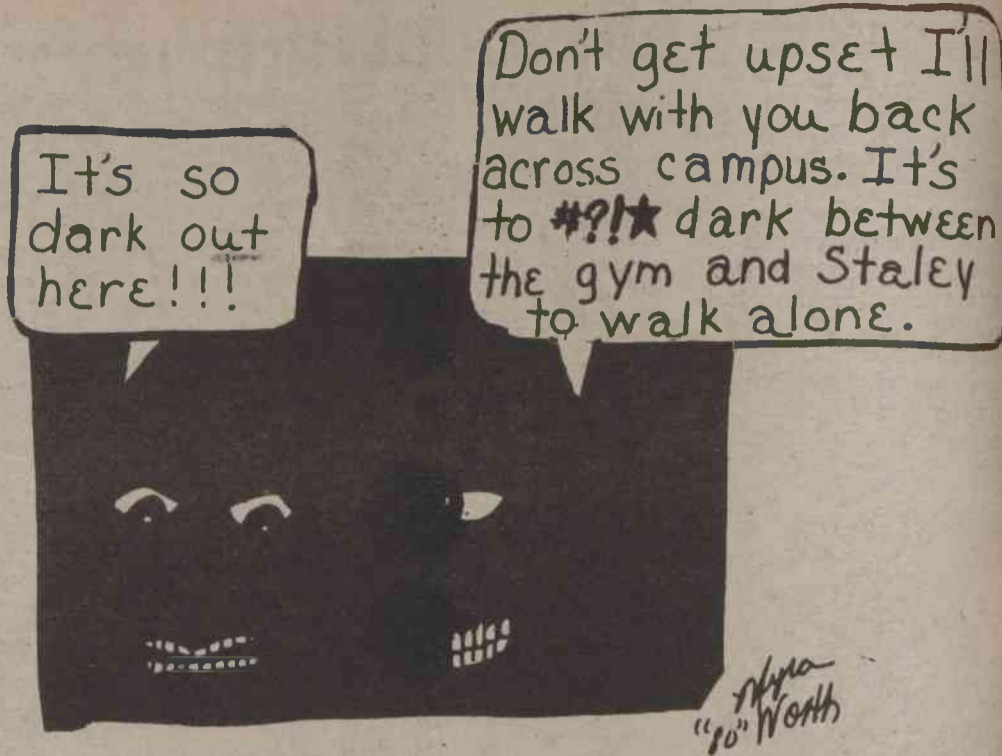 It's so
dark out
here!!!
Don't get upset I'll
walk with you back
across campus. It's
to #?!★ dark between
the gym and Staley
to walk alone.
Myra
Worth